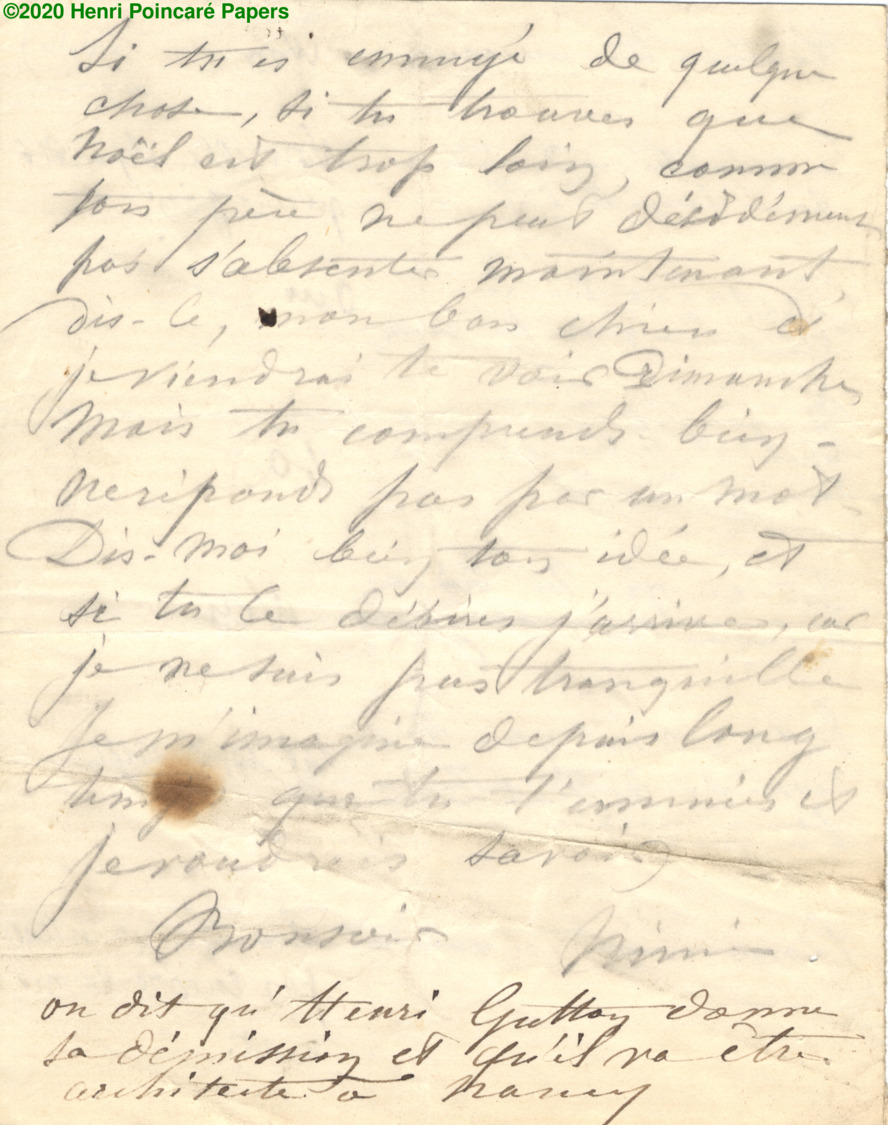 ©2020 Henri Poincaré Papers
Si tu es ennuyé de quelque
chose, si tu trouves que
Noël est trop loin, comme
ton père ne peut décidément
pas s'absenter maintenant
dis-le, mon bon chien et
je viendrai te voir Dimanche,
Mais tu comprends bien -
Ne réponds pas par un mot -
Dis-moi bien ton idée, et
si tu le désires j'arrive, car
je ne suis pas tranquille
Je m'imagine depuis long
temps que tu t'ennuies et
je voudrais savoir
Bonsoir
on dit qu'Henri Gutton donne
sa démission et qu'il va être
architecte à Nancy